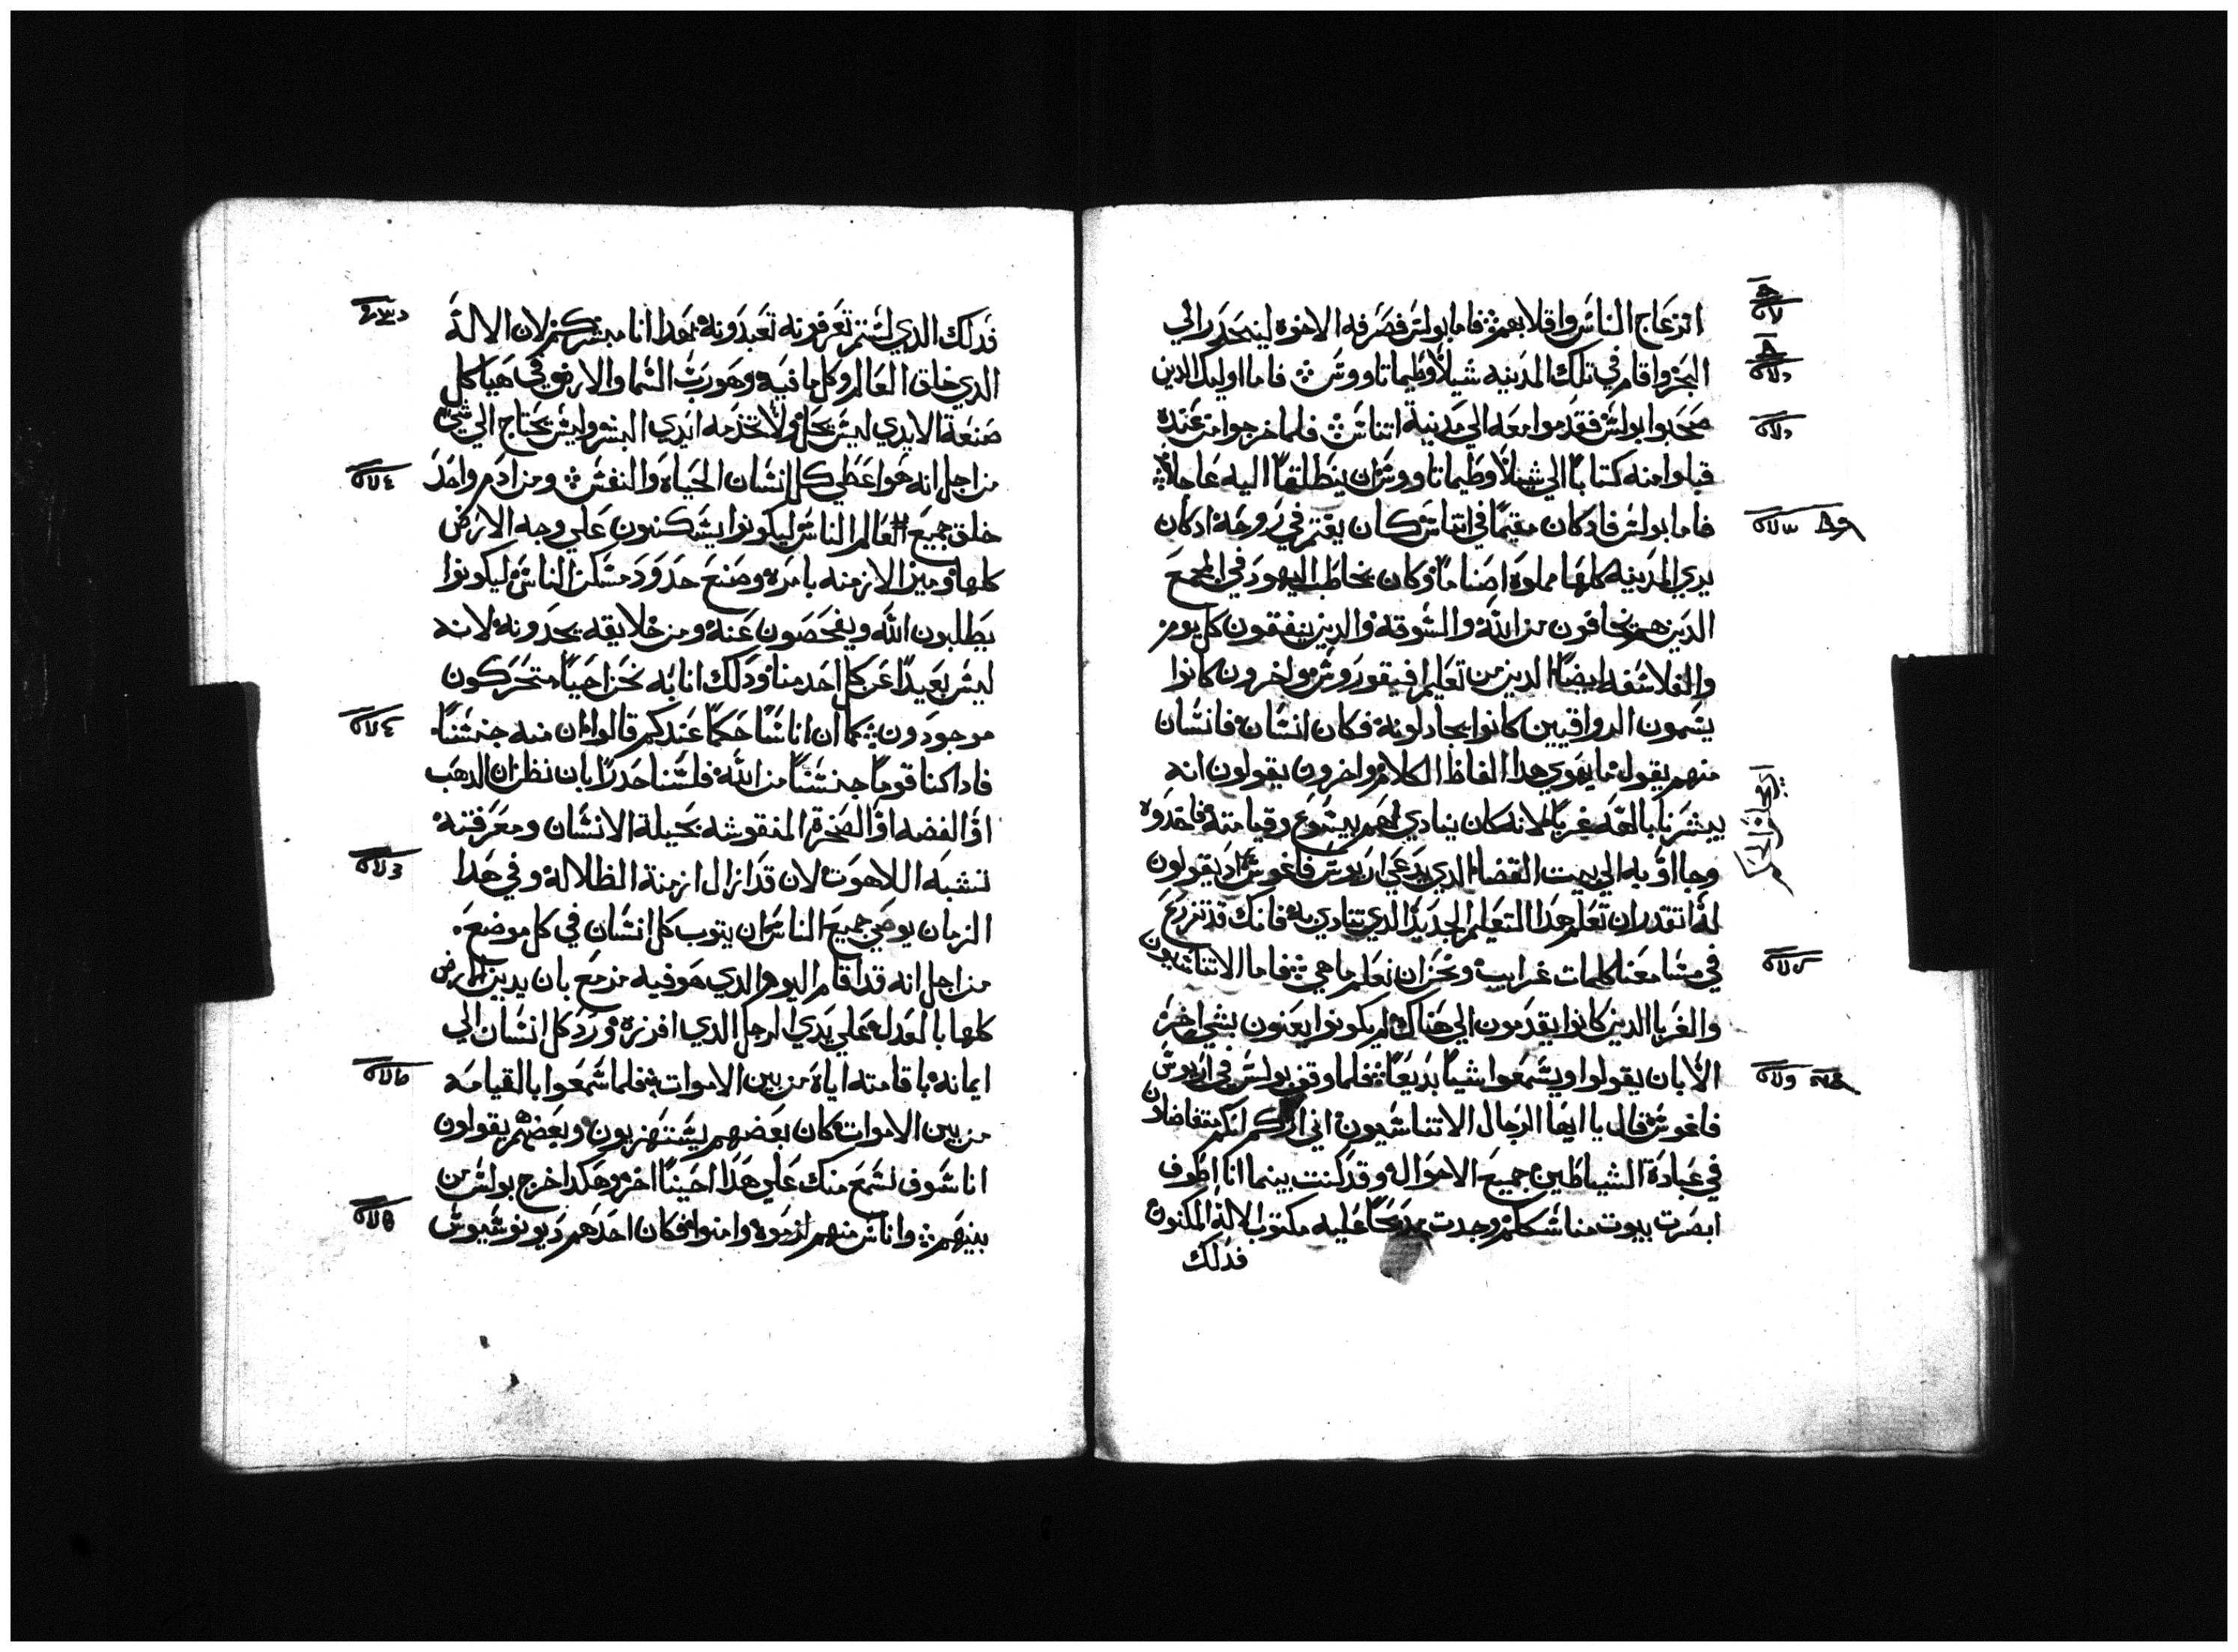 انزعاج الناس واقلابهم ܀ فاما بولس فصرفه الاخوه لينحدر الي
البحر واقام في تلك المدينه شيلا وطيماتاووس ܀ فاما اوليك الدين
صحبوا بولس فقدموا معه الي مدينة اتناس ܀ فلما خرجوا من عنده
قبلوا منه كتابا الي شيلا وطيماتاووس ان ينطلقا اليه عاجلا ܀
فاما بولس فادكان مقيما في اتناس كان يغتم في روحه ادكان
يري المدينه كلها مملوه اصناما وكان يخاطب اليهود في المجمع
الدين هم يخافون من الله والسوقه والدين يتفقون كل يوم
والفلاسفه ايضا الدين من تعليم افيقوروس واخرون كانوا
يسمون الرواقيين كانوا يجادلونه فكان انسان فانسان
منهم يقول ما يهوي هدا الفاظ الكلام واخرون يقولون انه
يبشرنا بالهه غربا لانه كان ينادي لهم بيسوع وقيامته فاخدوه
وجااو به الي بيت القضا الدي يدعي اريوس فاغوس اد يقولون
له اتقدر ان تعلم هدا التعليم الجديد الدي تنادي به فانك قد تزرع
في مسامعنا كلمات غرايب ونحن ان نعلم ماهي ܀ فاما الاتناسيون
والغربا الدين كانوا يقدمون الي هناك لم يكونوا يعنون بشي اخر
الا بان يقولوا ويسمعوا شيا بديعا ܀ فلما وقف بولس في اريوس
فاغوس قال يا ايها الرجال الاتناسيون اني اراكم انكم متفاضلون
في عبادة الشياطين جميع الاحوال وقد كنت بينما انا اطوف
ابصرت بيوت مناسككم وجدت مدبحا عليه مكتوب الاله المكنون
فدلك
فدلك الدي لستم تعرفونه تعبدونه بهدا انا مبشركم لان الاله
الدي خلق العالم وكل ما فيه وهو رب السما والارض في هياكل
صنعة الايدي ليس يحل ولا تخدمه ايدي البشر وليس يحتاج الي شي
من اجل انه هو اعطي كل انسان الحياه والنفس ܀ ومن ادم واحد
خلق جميع العالم الناس ليكونوا يسكنون علي وجه الارض
كلها وميز الازمنه بامره وصنع حدود مسكن الناس ليكونوا
يطلبون الله ويفحصون عنه ومن خلايقه يجدونه لانه
ليس بعيدا عن كل احد منا ودلك انا به نحن احيا متحركون
موجودون ܀ كما ان اناسا حكما عندكم قالوا ان منه جنسنا
فاداكنا قوما جنسنا من الله فلسنا حدرا بان نظن ان الدهب
او الفضه او الصخرة المنقوشه بحيلة الانسان ومعرفته
تشبه اللاهوت لان قد ازال ازمنة الظلاله وفي هدا
الزمان يوصي جميع الناس ان يتوب كل انسان في كل موضع
من اجل انه قد اقام اليوم الدي هو فيه مزمع بان يدين الارض
كلها بالعدل علي يدي الرجل الدي افرزه ورد كل انسان الي
ايمانه باقامته اياه من بين الاموات ܀ فلما سمعوا بالقيامه
من بين الاموات كان بعضهم يستهزيون وبعضهم يقولون
انا سوف نسمع منك علي هدا احينا اخر وهكدا خرج بولس من
بينهم ܀ واناس منهم لزموه وامنوا فكان احدهم ديونوسيوس